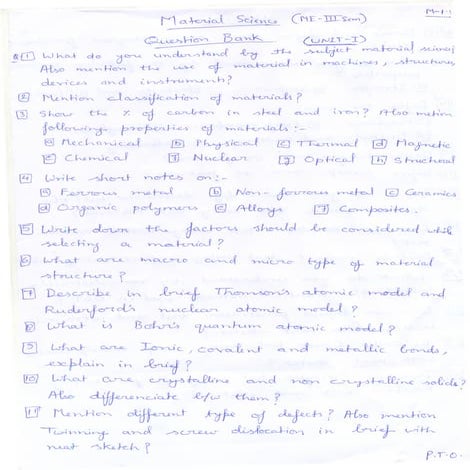 M-1
Material Science (ME-III Sem)
Question Bank (UNIT-I)
Q.1 What do you understand by the subject material science?
Also mention the use of material in machines, structures,
devices and instruments?
2 Mention classification of materials?
3 Show the % of carbon in steel and iron? Also metion
following properties of materials:-
a Mechanical b Physical c Thermal d Magnetic
e Chemical f Nuclear g Optical h Structural
4 Write short notes on:-
a Ferrous metal b Non-ferrous metal c Ceramics
d Organic polymers e Alloys f Composites.
5 Write down the factors should be considered while
selecting a material?
6 What are macro and micro type of material
structure?
7 Describe in brief Thomson's atomic model and
Ruderford's nuclear atomic model?
8 What is Bohr's quantum atomic model?
9 What are Ionic, covalent and metallic bonds,
explain in brief?
10 What are crystalline and non crystalline solids?
Also differenciate b/w them?
11 Mention different type of defects? Also mention
Twinning and screw dislocation in brief with
neat sketch?
P.T.O.